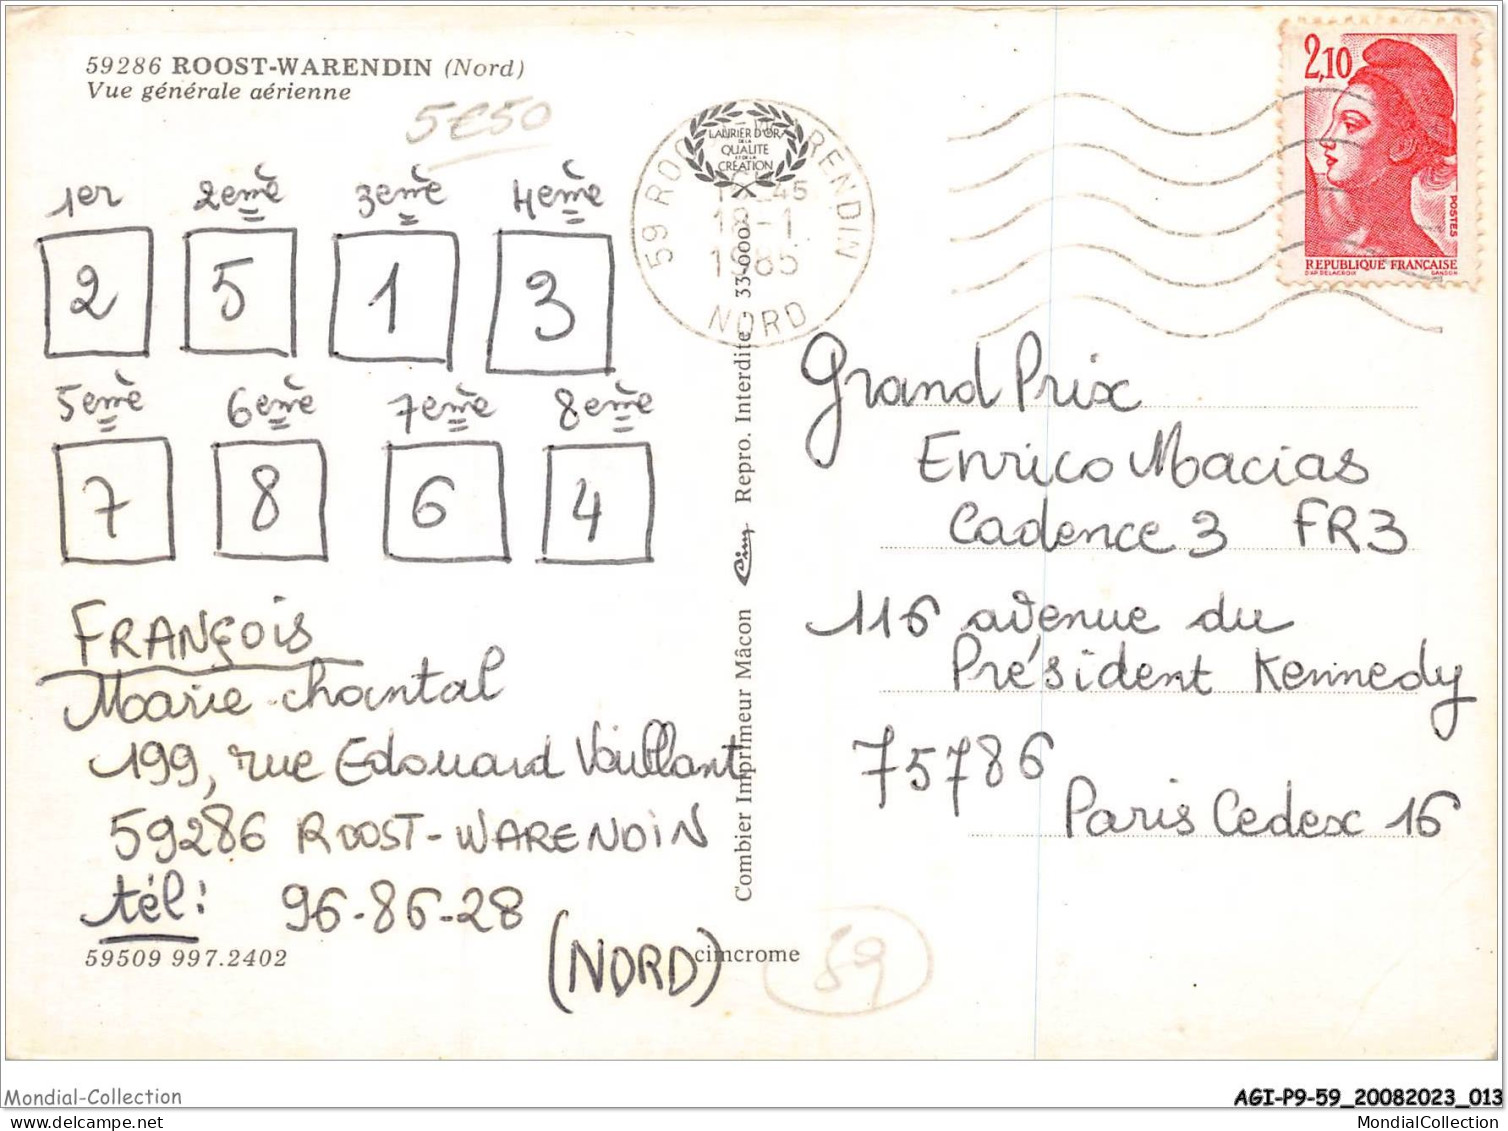 59286 ROOST-WARENDIN (Nord)
Vue générale aérienne
5€50
1er 2eme 3eme 4eme
2 5 1 3
5eme 6eme 7eme 8eme
7 8 6 4
FRANÇOIS
Marie-chantal
199, rue Edouard Vaillant
59286 ROOST-WARENDIN
tél: 96-86-28
(NORD)
59509 997.2402
cimcrome
59
Combier Imprimeur Mâcon Cim Repro. Interdite 33-000
LAURIER D'OR
DE LA
QUALITE
ET DE LA
CREATION
59 ROO RENDIN
45
18-1
1985
NORD
2,10
POSTES
REPUBLIQUE FRANÇAISE
D'AP DELACROIX GANDON
Grand Prix
Enrico Macias
Cadence 3 FR3
116 avenue du
Président Kennedy
75786
Paris Cedex 16
Mondial-Collection
AGI-P9-59_20082023_013
MondialCollection